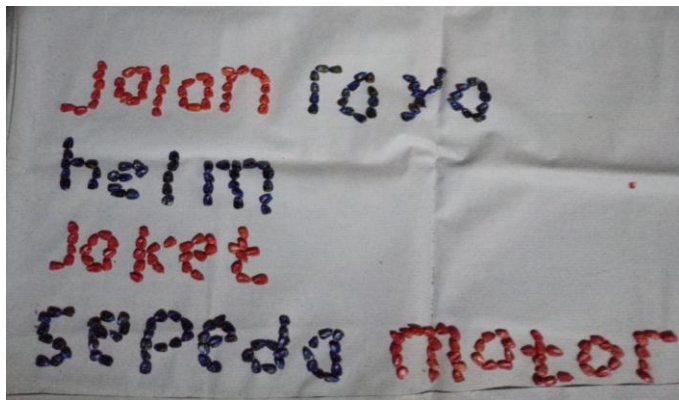 jalan raya
helm
jaket
sepeda motor